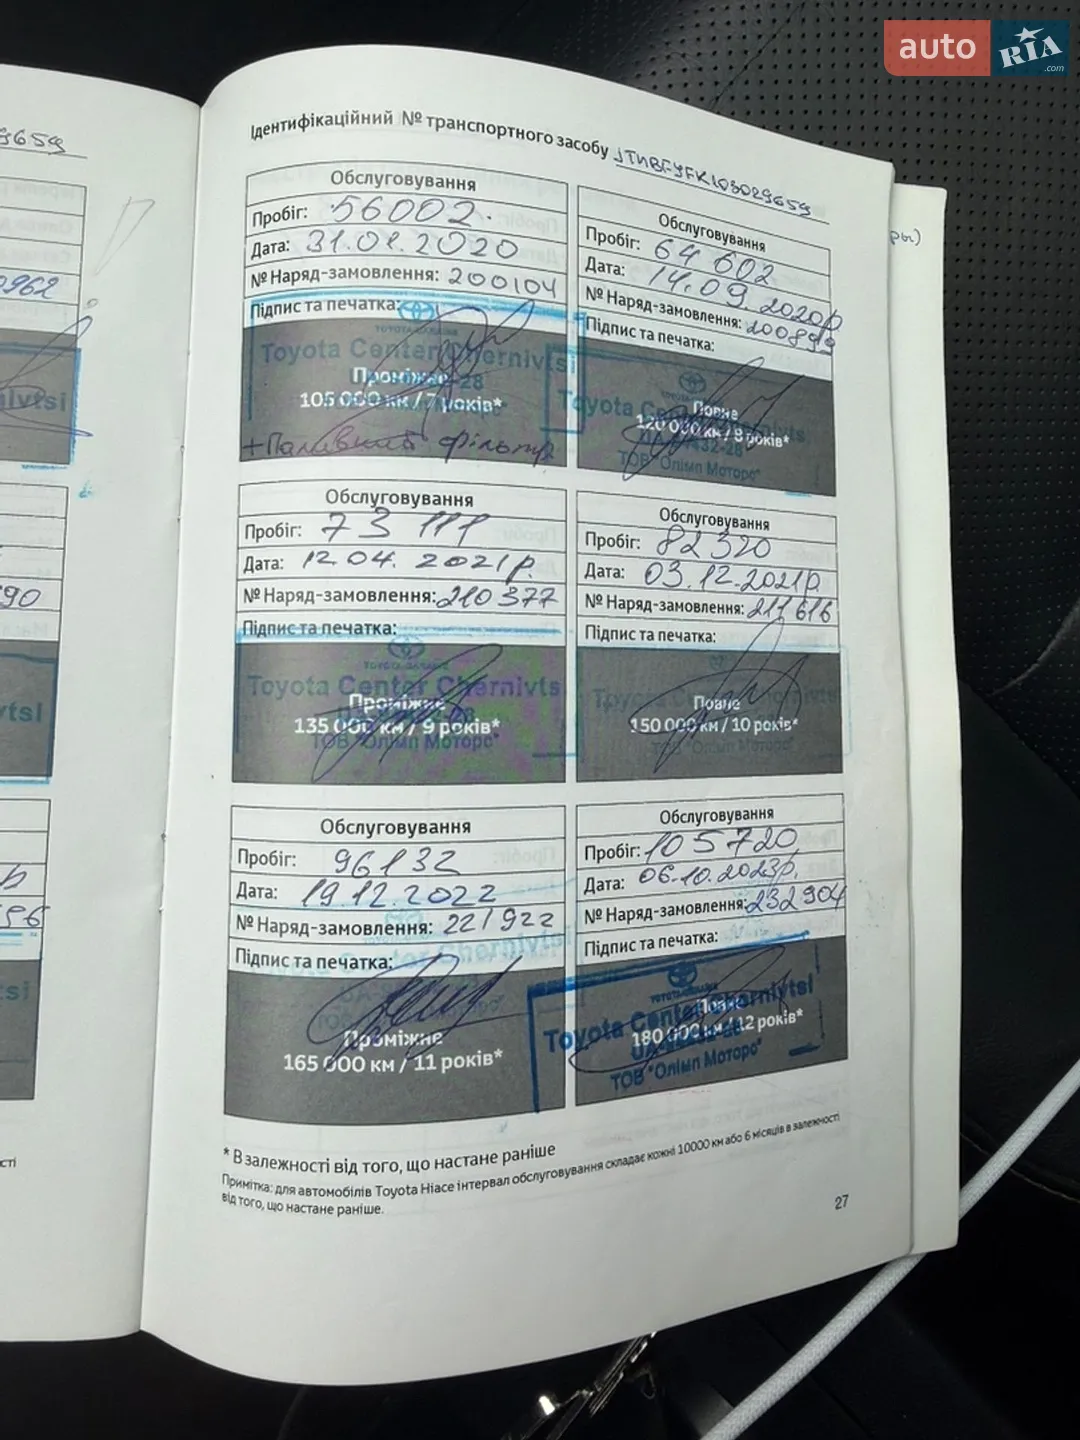 auto RIA.com
Ідентифікаційний № транспортного засобу JTNBF4FK103029659
Обслуговування
Пробіг: 56002.
Дата: 31.01.2020
№ Наряд-замовлення: 200104
Підпис та печатка:
Toyota Center Chernivtsi
Проміжне
105 000 км / 7 років*
+Паливний фільтр
Обслуговування
Пробіг: 64 602
Дата: 14.09.2020р
№ Наряд-замовлення: 200899
Підпис та печатка:
Toyota Center Chernivtsi
Повне
120 000 км / 8 років*
ТОВ "Олімп Моторс"
Обслуговування
Пробіг: 73 111
Дата: 12.04.2021р.
№ Наряд-замовлення: 210377
Підпис та печатка:
Toyota Center Chernivtsi
Проміжне
135 000 км / 9 років*
ТОВ "Олімп Моторс"
Обслуговування
Пробіг: 82320
Дата: 03.12.2021р
№ Наряд-замовлення: 211616
Підпис та печатка:
Toyota Center Chernivtsi
Повне
150 000 км / 10 років*
ТОВ "Олімп Моторс"
Обслуговування
Пробіг: 96132
Дата: 19.12.2022
№ Наряд-замовлення: 221922
Підпис та печатка:
Проміжне
165 000 км / 11 років*
Обслуговування
Пробіг: 105720
Дата: 06.10.2023р.
№ Наряд-замовлення: 232904
Підпис та печатка:
Toyota Center Chernivtsi
Повне
180 000 км / 12 років*
ТОВ "Олімп Моторс"
* В залежності від того, що настане раніше
Примітка: для автомобілів Toyota Hiace інтервал обслуговування складає кожні 10000 км або 6 місяців в залежності
від того, що настане раніше.
27